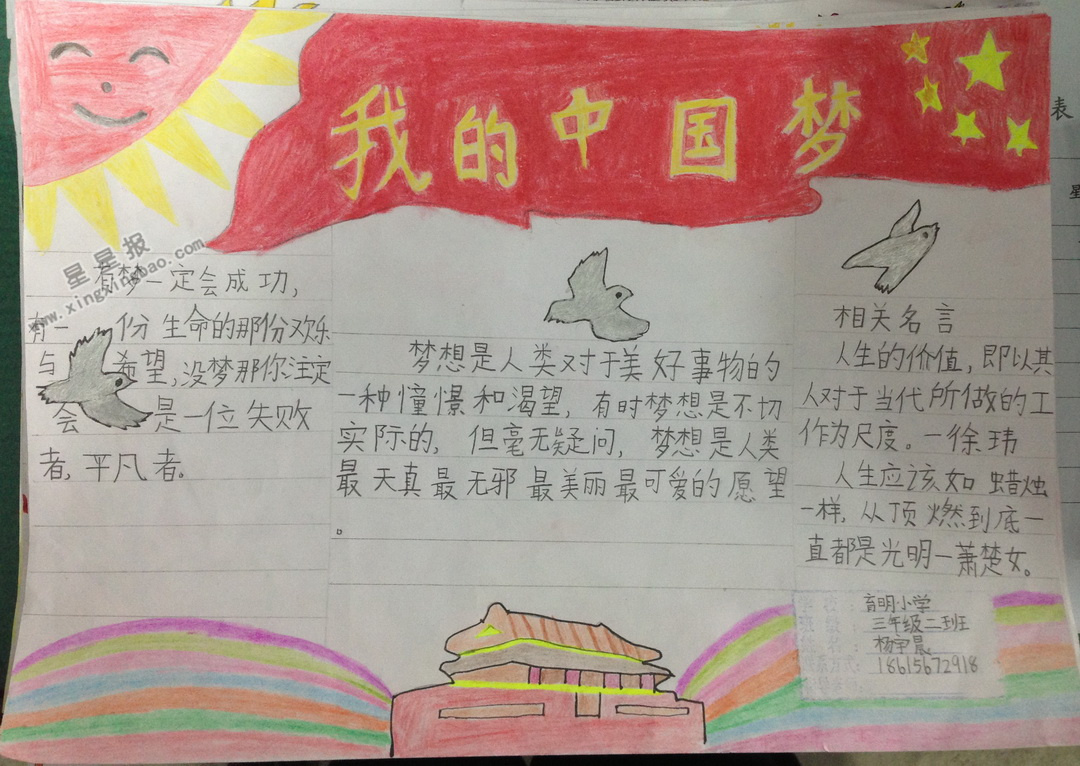 我的中国梦
星星报
www.xingxingbao.com
有梦一定会成功,
有一 份生命的那份欢乐
与 希望,没梦那你注定
会 是一位失败
者,平凡者.
梦想是人类对于美好事物的
一种憧憬和渴望,有时梦想是不切
实际的,但毫无疑问,梦想是人类
最天真最无邪最美丽最可爱的愿望
。
相关名言
人生的价值,即以其
人对于当代所做的工
作为尺度。一徐玮
人生应该如蜡烛
一样,从顶燃到底一
直都是光明一萧楚女。
育明小学
三年级二班
杨宇晨
18615672918
表